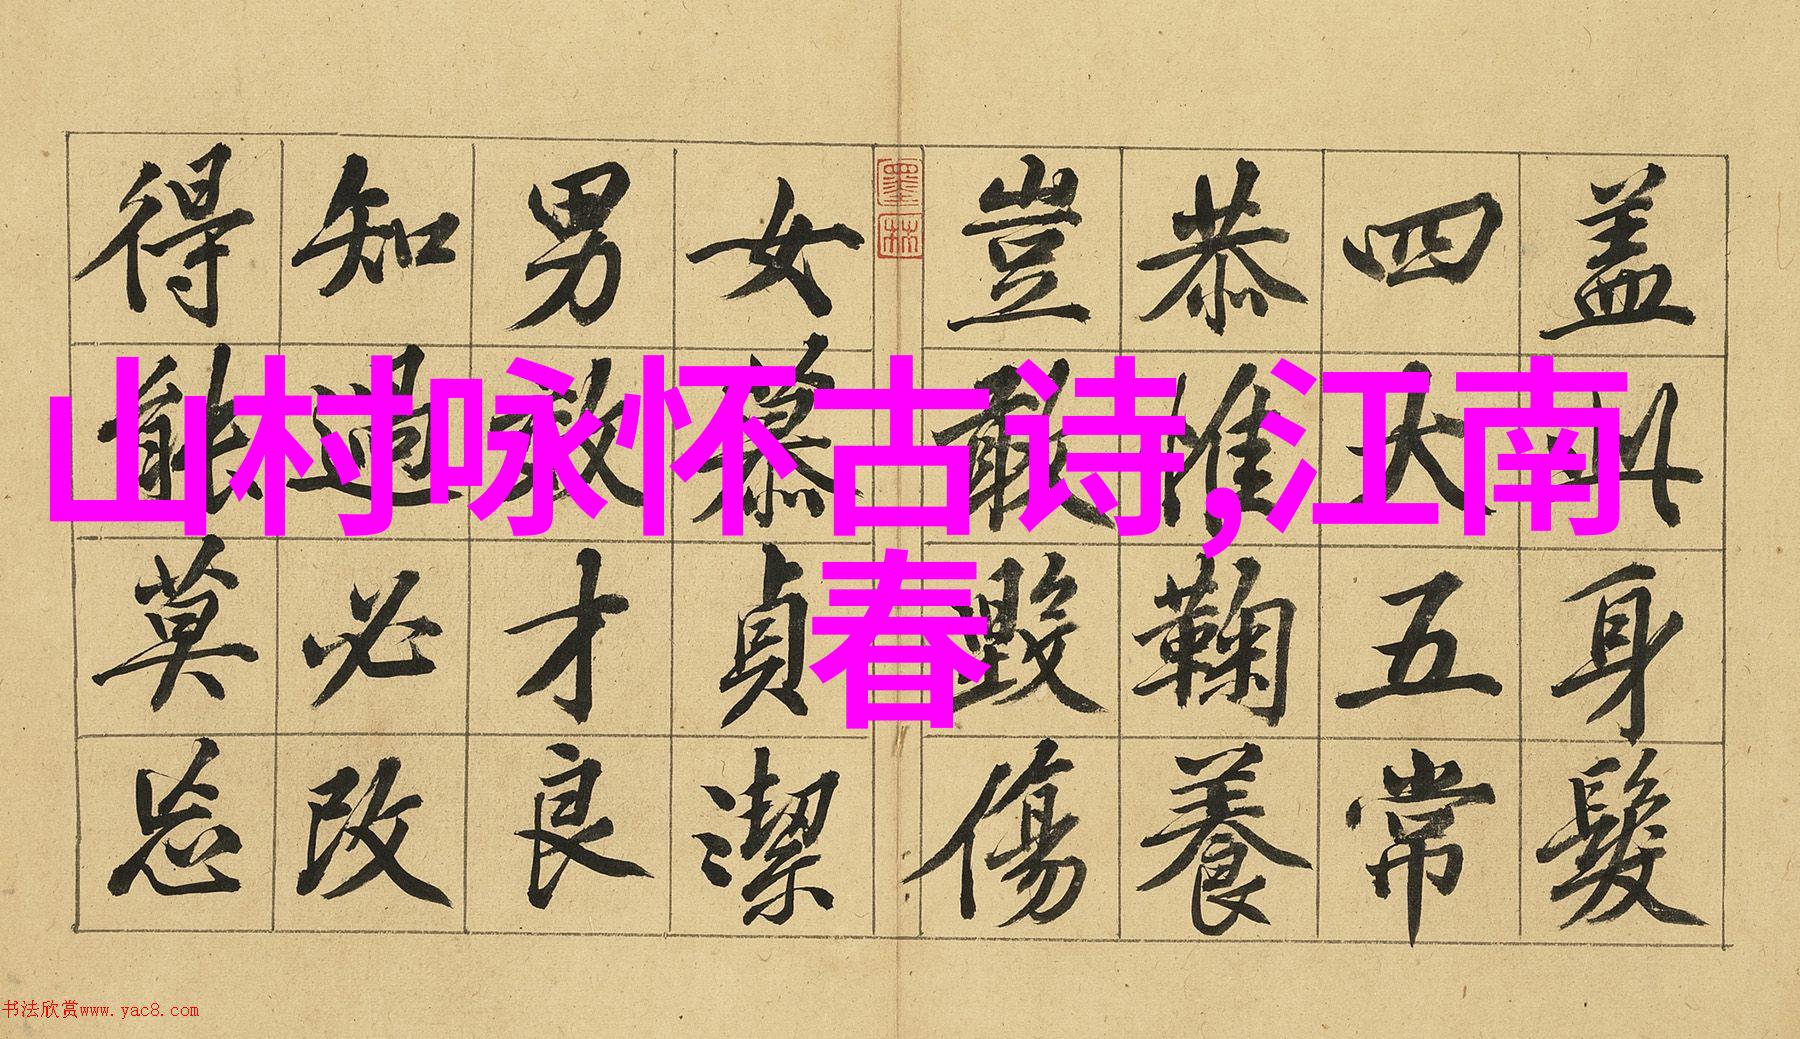 山村咏怀古诗,江南
春
盖此身髮
四大五常
恭惟鞠養
豈敢毀傷
墨林
女慕貞潔
男效才良
知過必改
得能莫忘
书法欣赏www.yac8.com